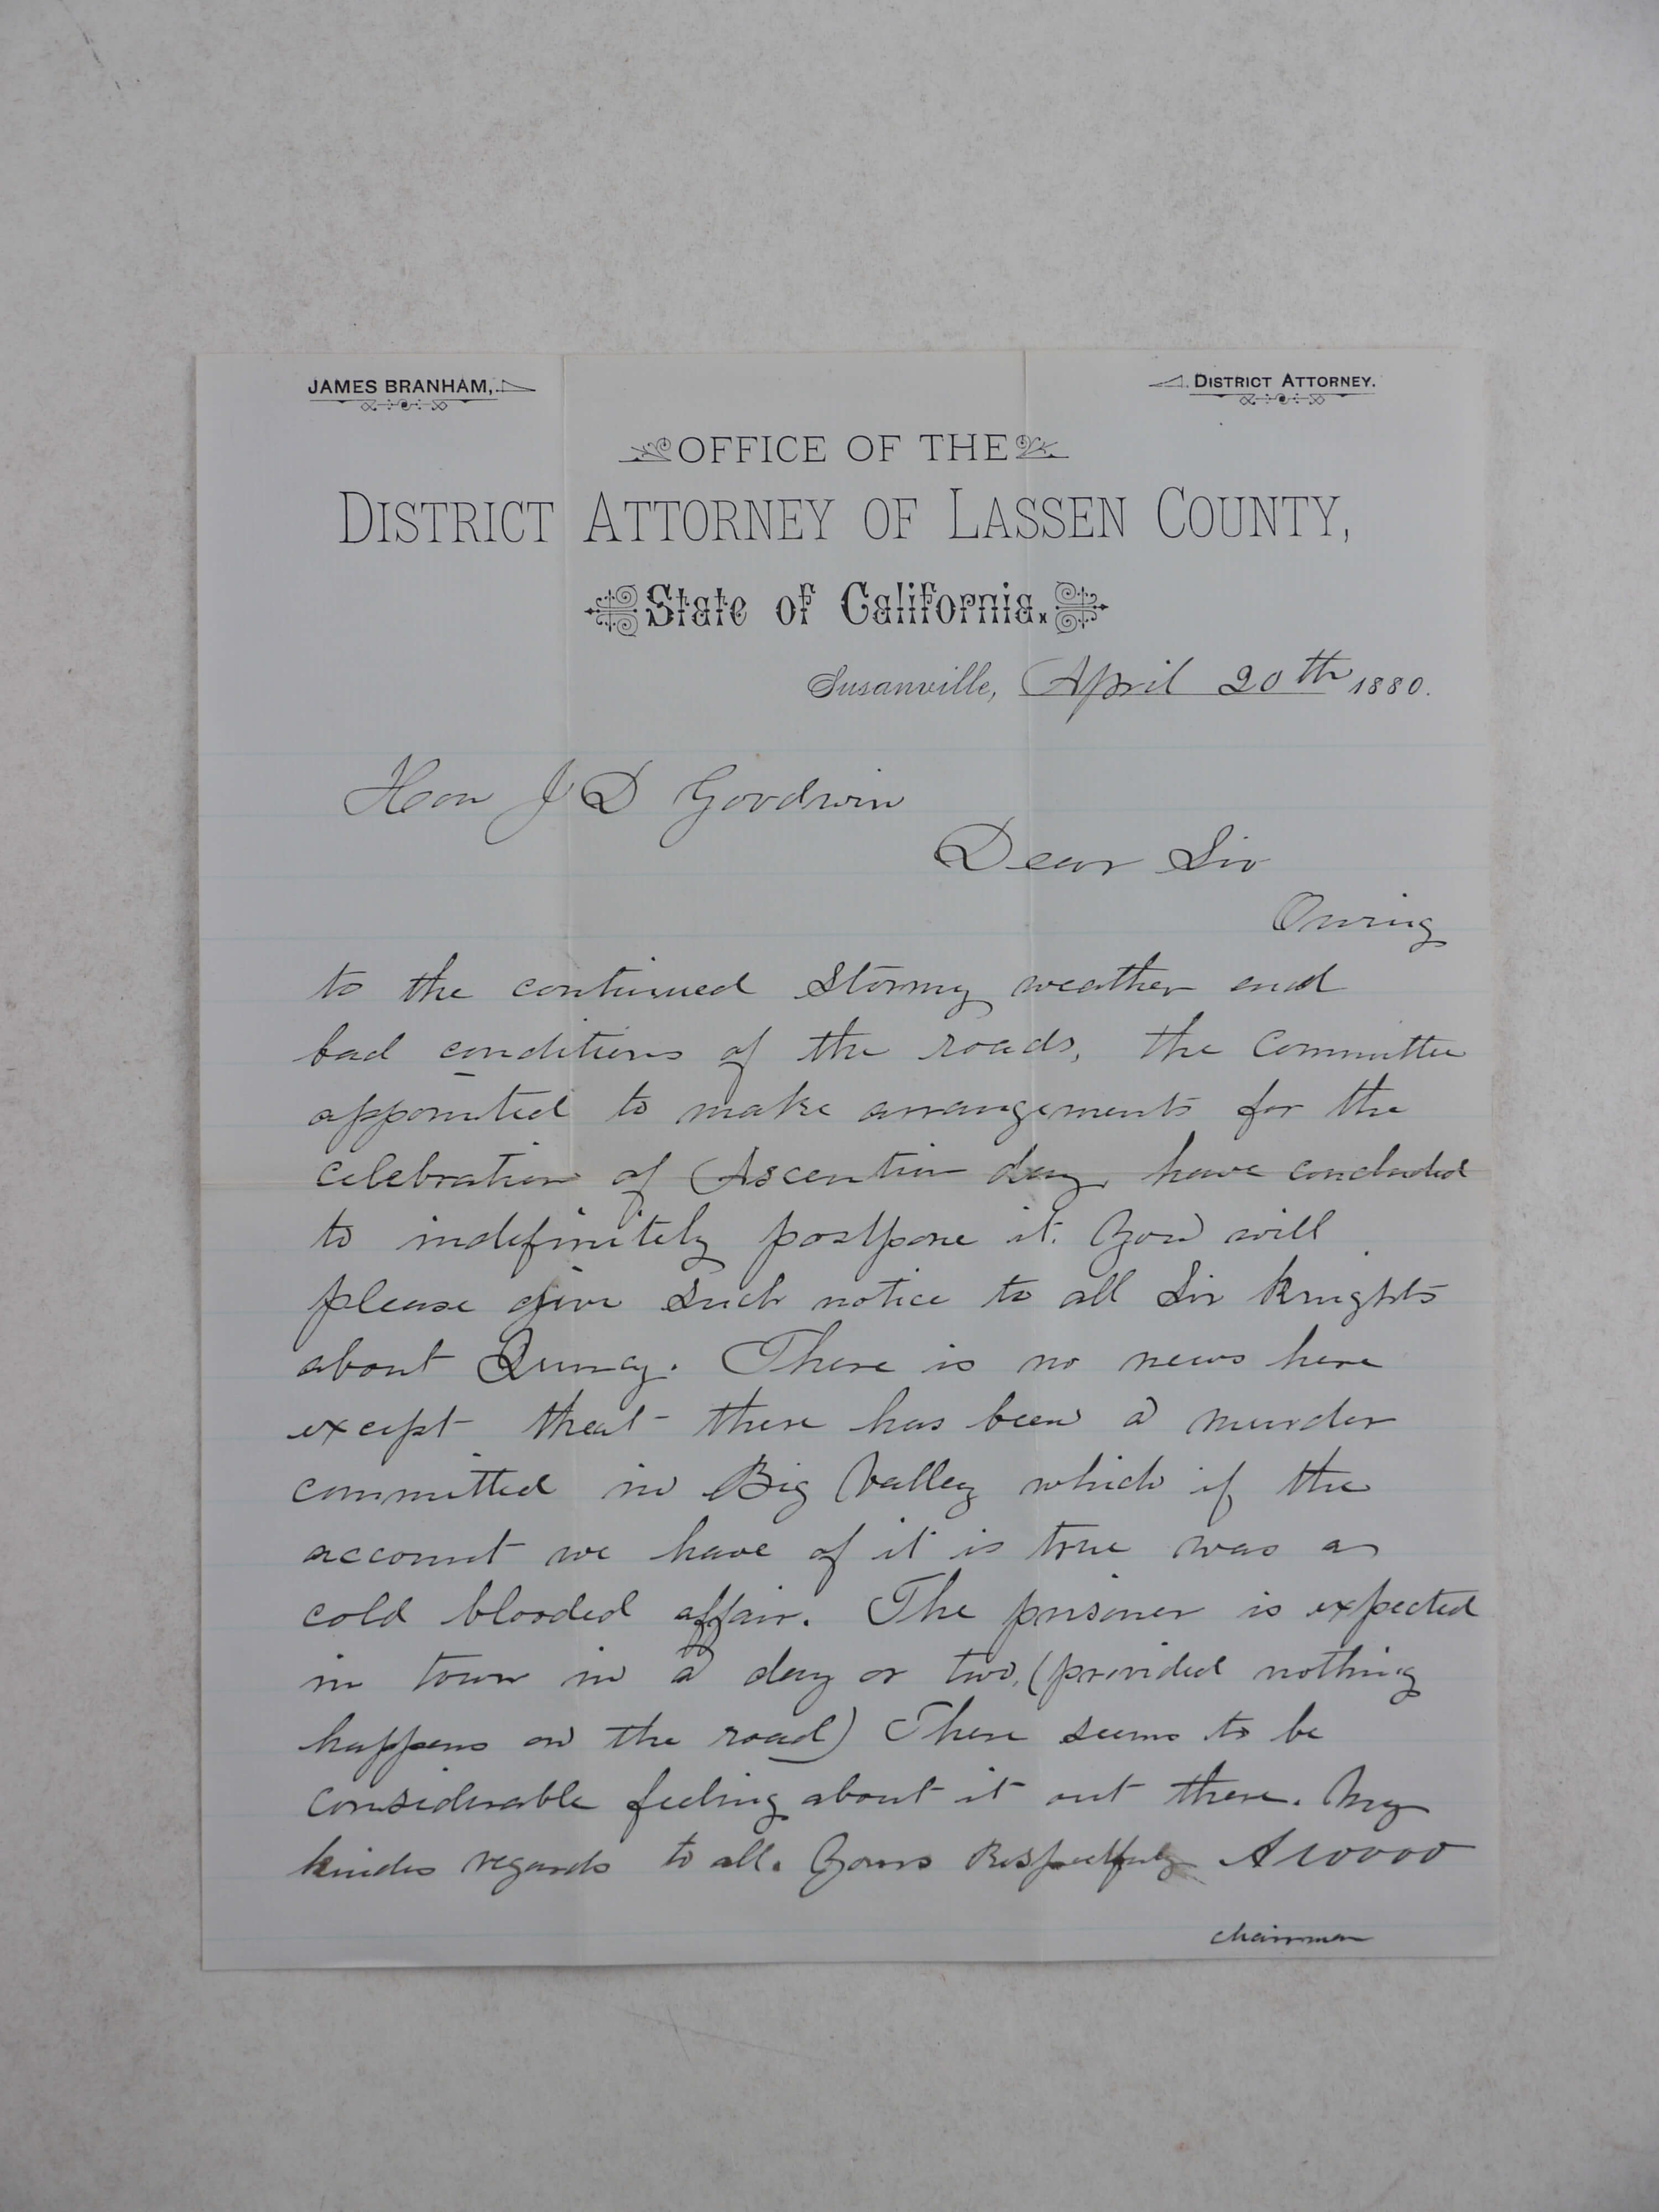 JAMES BRANHAM,
DISTRICT ATTORNEY.
OFFICE OF THE
DISTRICT ATTORNEY OF LASSEN COUNTY,
State of California.
Susanville, April 20th 1880.
Hon J D Goodwin
Dear Sir
Owing
to the continued Stormy weather and
bad conditions of the roads, the Committee
appointed to make arrangements for the
celebration of Ascention day, have concluded
to indefinitely postpone it. You will
please give such notice to all Sir Knights
about Quincy. There is no news here
except that there has been a murder
committed in Big Valley which if the
account we have of it is true was a
cold blooded affair. The prisoner is expected
in town in a day or two, (provided nothing
happens on the road) There seems to be
considerable feeling about it out there. My
kindes regards to all. Yours Respectfuly A Wood
chairman